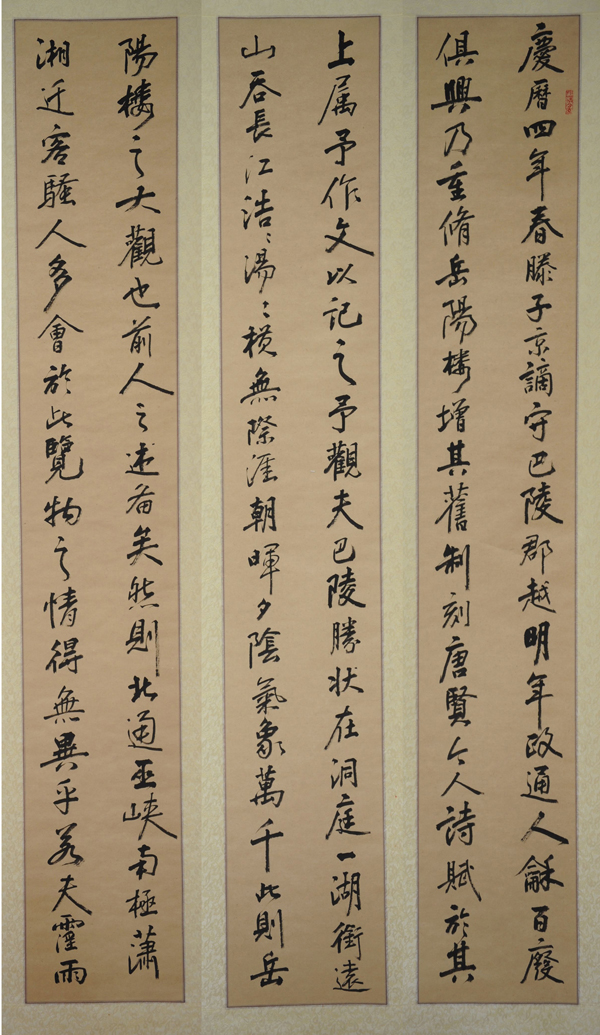 慶曆四年春滕子京謫守巴陵郡越明年政通人龢百廢
俱興乃重脩岳陽楼增其舊制刻唐賢今人詩賦於其
上属予作文以記之予觀夫巴陵勝狀在洞庭一湖銜遠
山吞長江浩〻湯〻横無際涯朝暉夕陰氣象萬千此則岳
陽楼之大觀也前人之述备矣然則北通巫峽南極瀟
湘迁客騷人多會於此覽物之情得無異乎若夫霪雨